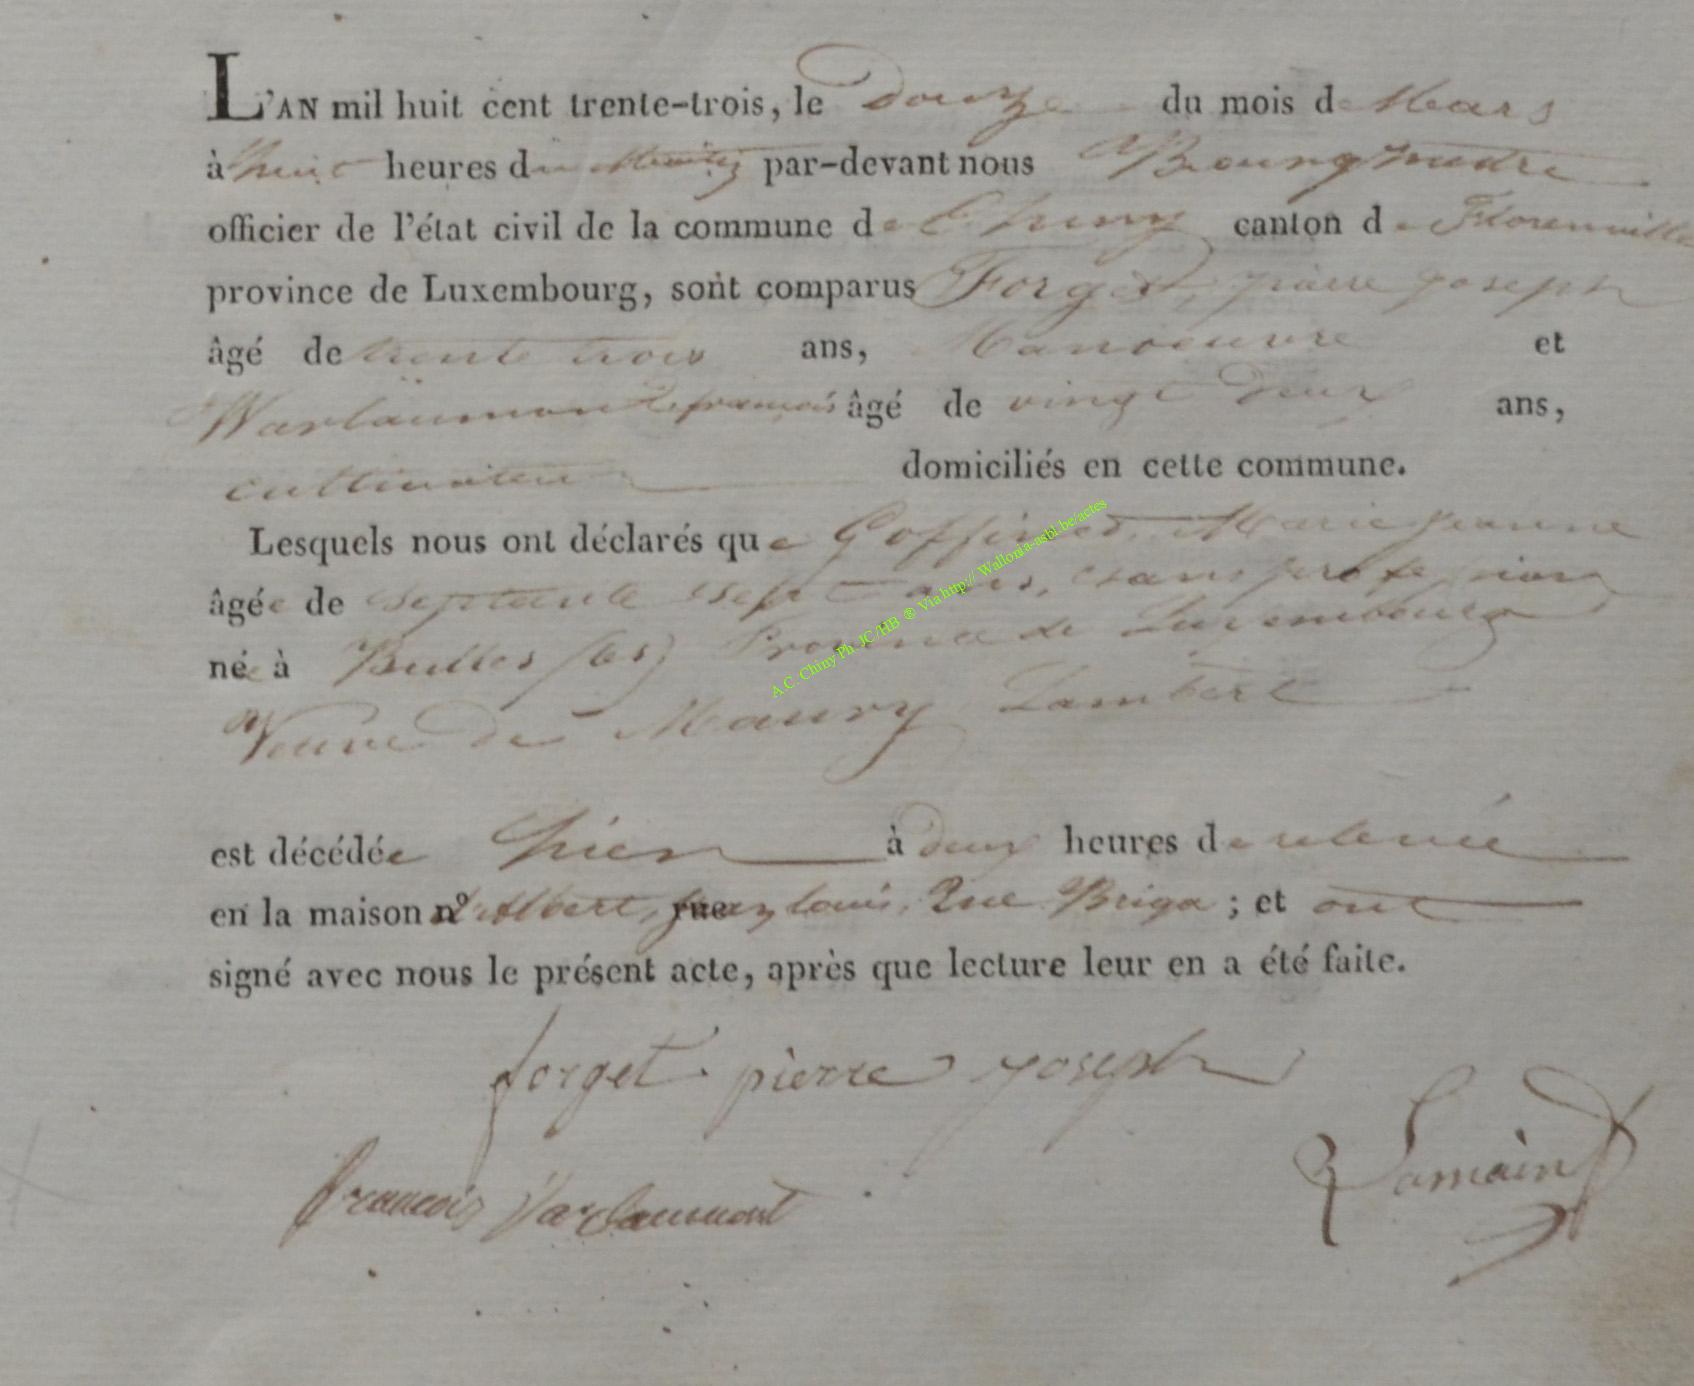 L'AN mil huit cent trente-trois, le Douze du mois de Mars
à huit heures du Matin par-devant nous Bourgmestre
officier de l'état civil de la commune de Chiny canton de Florenville
province de Luxembourg, sont comparus Forget, pierre joseph
âgé de trente trois ans, Manoeuvre et
Warlaumont françois âgé de vingt Deux ans,
cultivateur domiciliés en cette commune.
Lesquels nous ont déclarés que Goffinet, Marie jeanne
âgée de septante sept ans, sans profession
née à Bulles (les) Province de Luxembourg
Veuve de Maury Lambert
est décédée hier à deux heures de relevée
en la maison n° d'Albert, rue jean louis, Rue Briga ; et ont
signé avec nous le présent acte, après que lecture leur en a été faite.
forget pierre joseph
françois Varlaumont
Lamain
A.C. Chiny Ph. JC/HB ® Via http:// Wallonia-asbl.be/actes